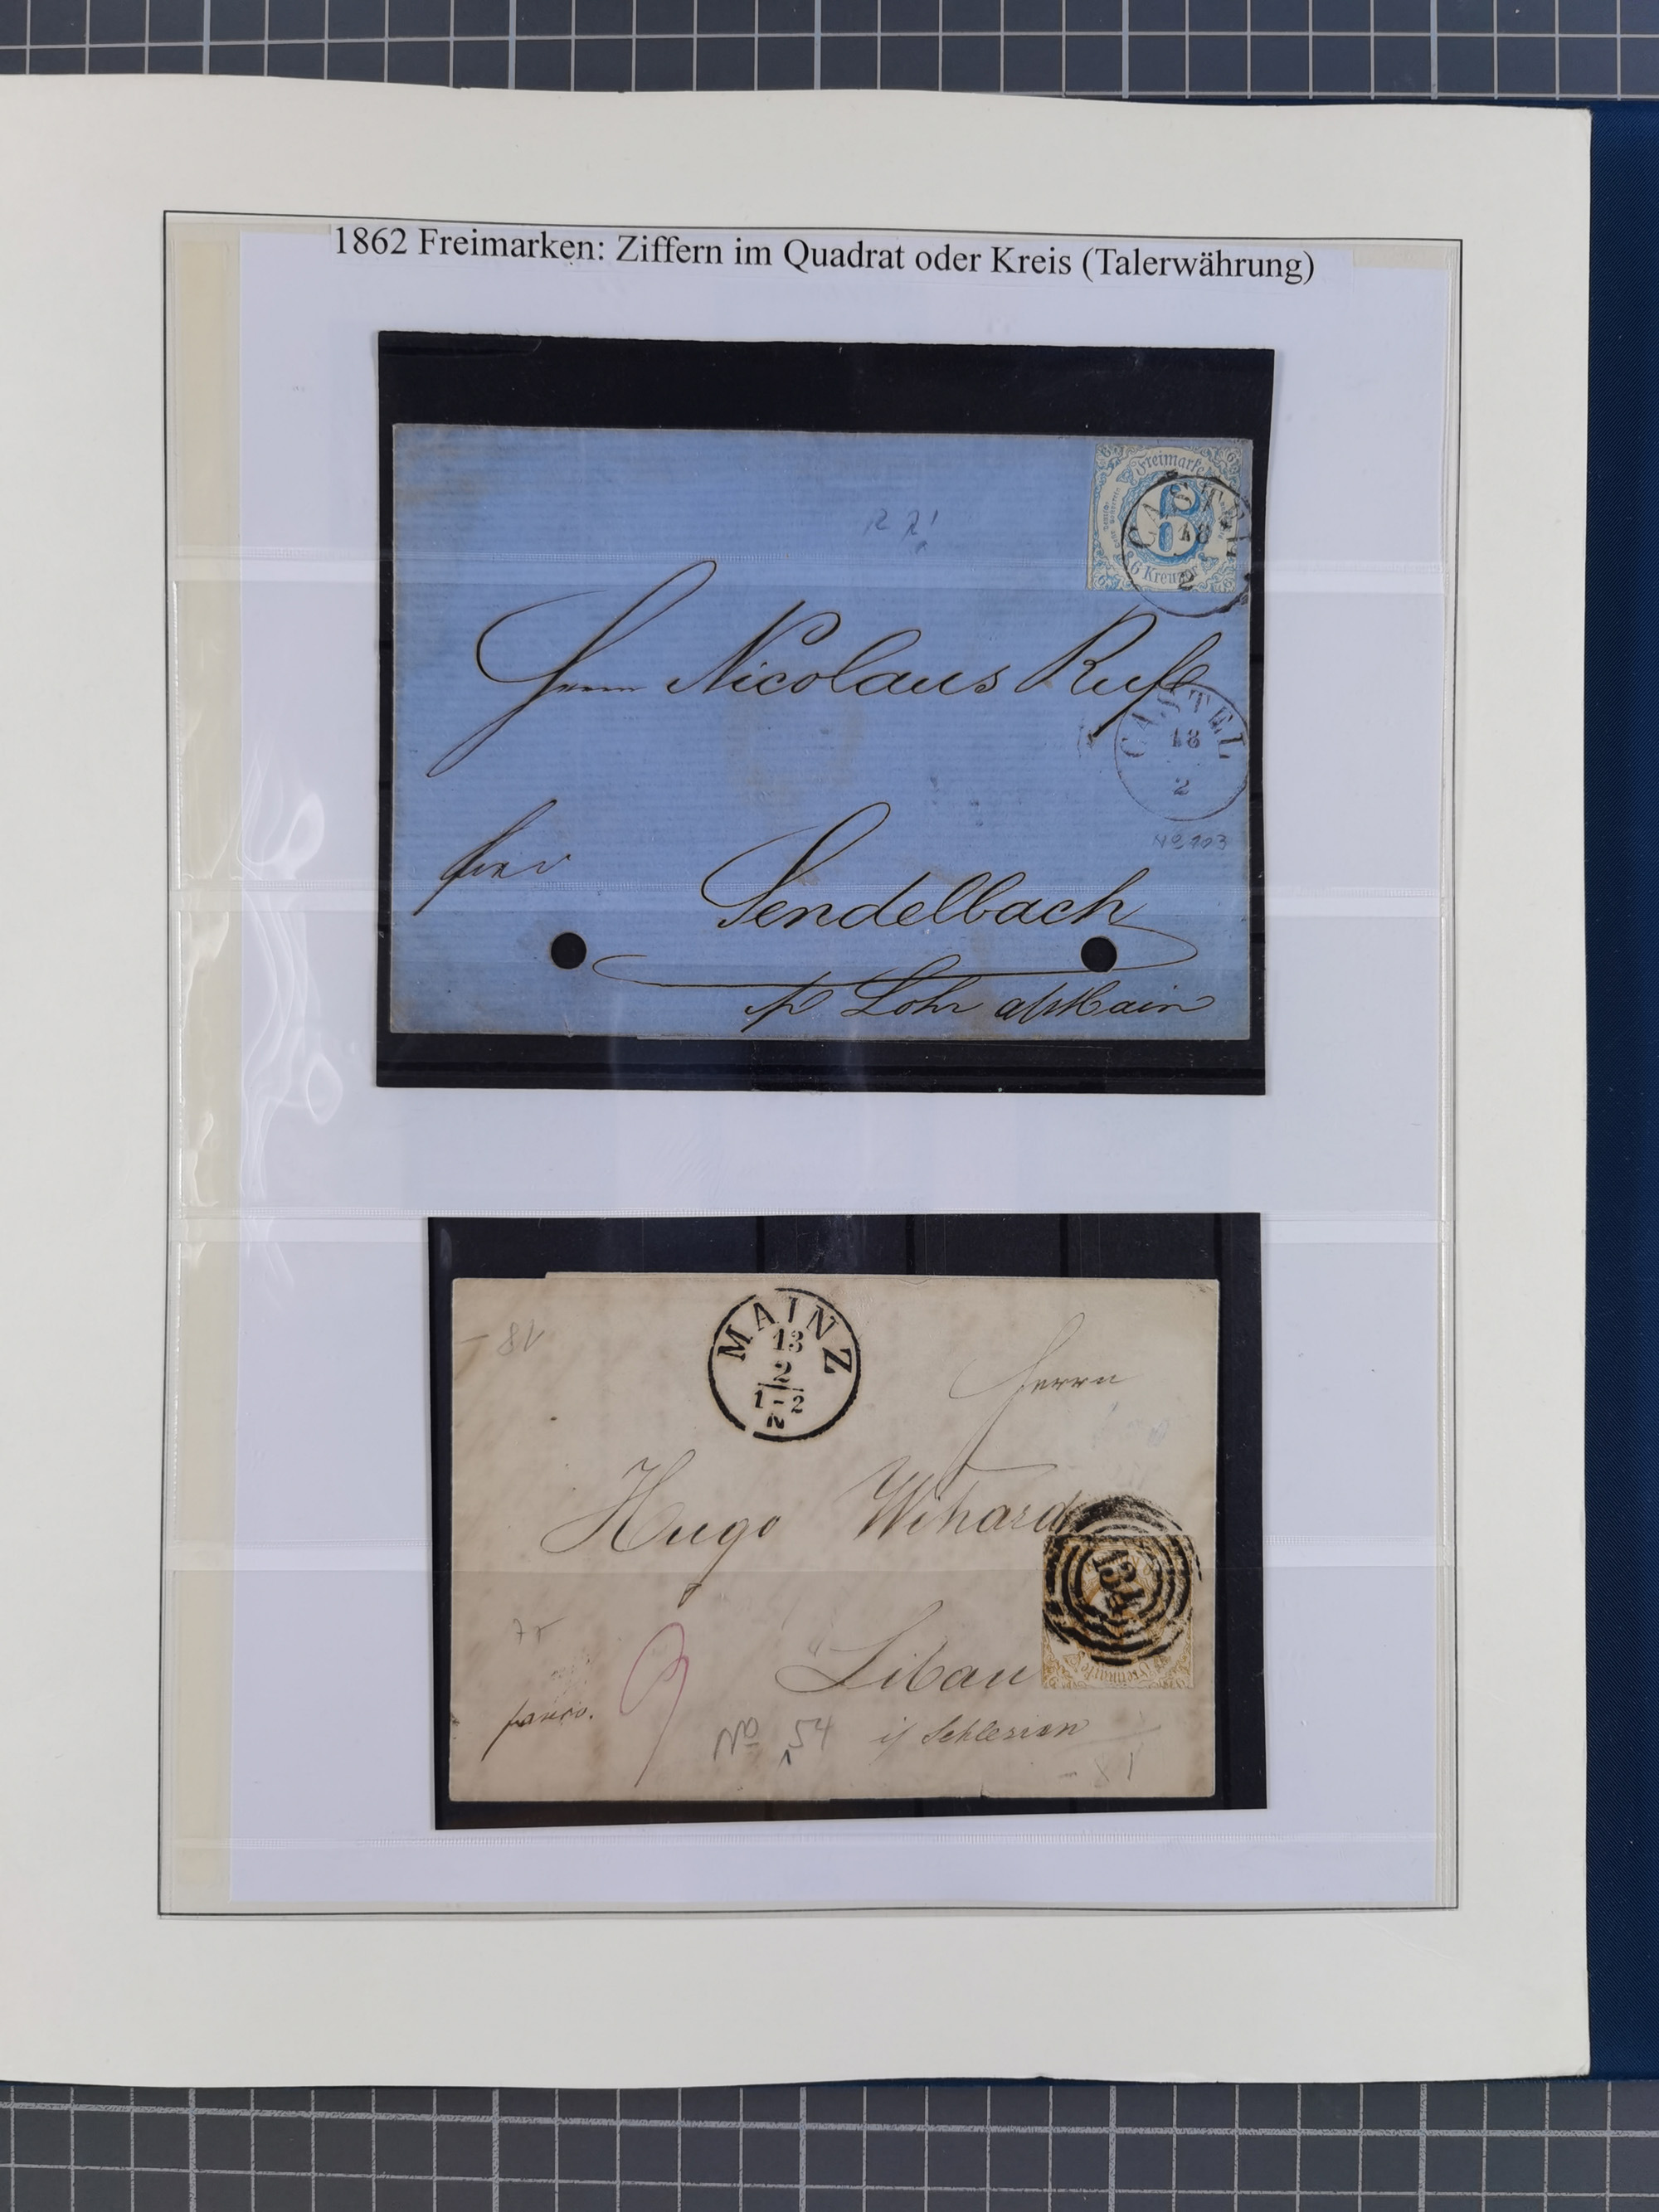 1862 Freimarken: Ziffern im Quadrat oder Kreis (Talerwährung)
Freimarke
6
6 Kreuzer
CASTEL
18
2
Herrn Nicolaus
CASTEL
18
2
Sendelbach
p Lohr a/Main
MAINZ
13
2
1-2
N
Herrn
Hugo Wihard
134
Freimarke
Libau
franco.
No 54
i/ Schlesien